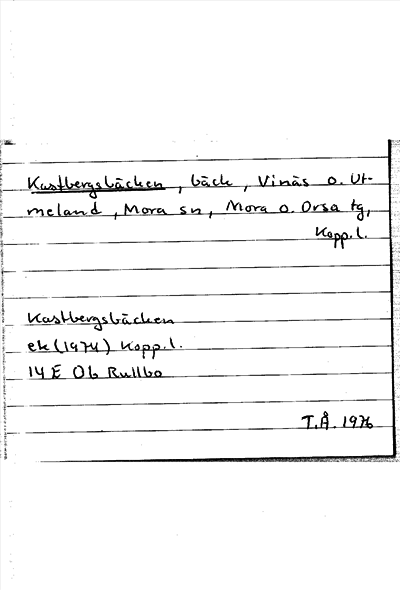 Kastbergsbäcken, bäck, Vinäs o. Ut-
meland, Mora sn, Mora o. Orsa tg,
Kopp.l.
Kastbergsbäcken
ek (1974) Kopp.l.
14E Ob Rullbo
T.Å. 1976